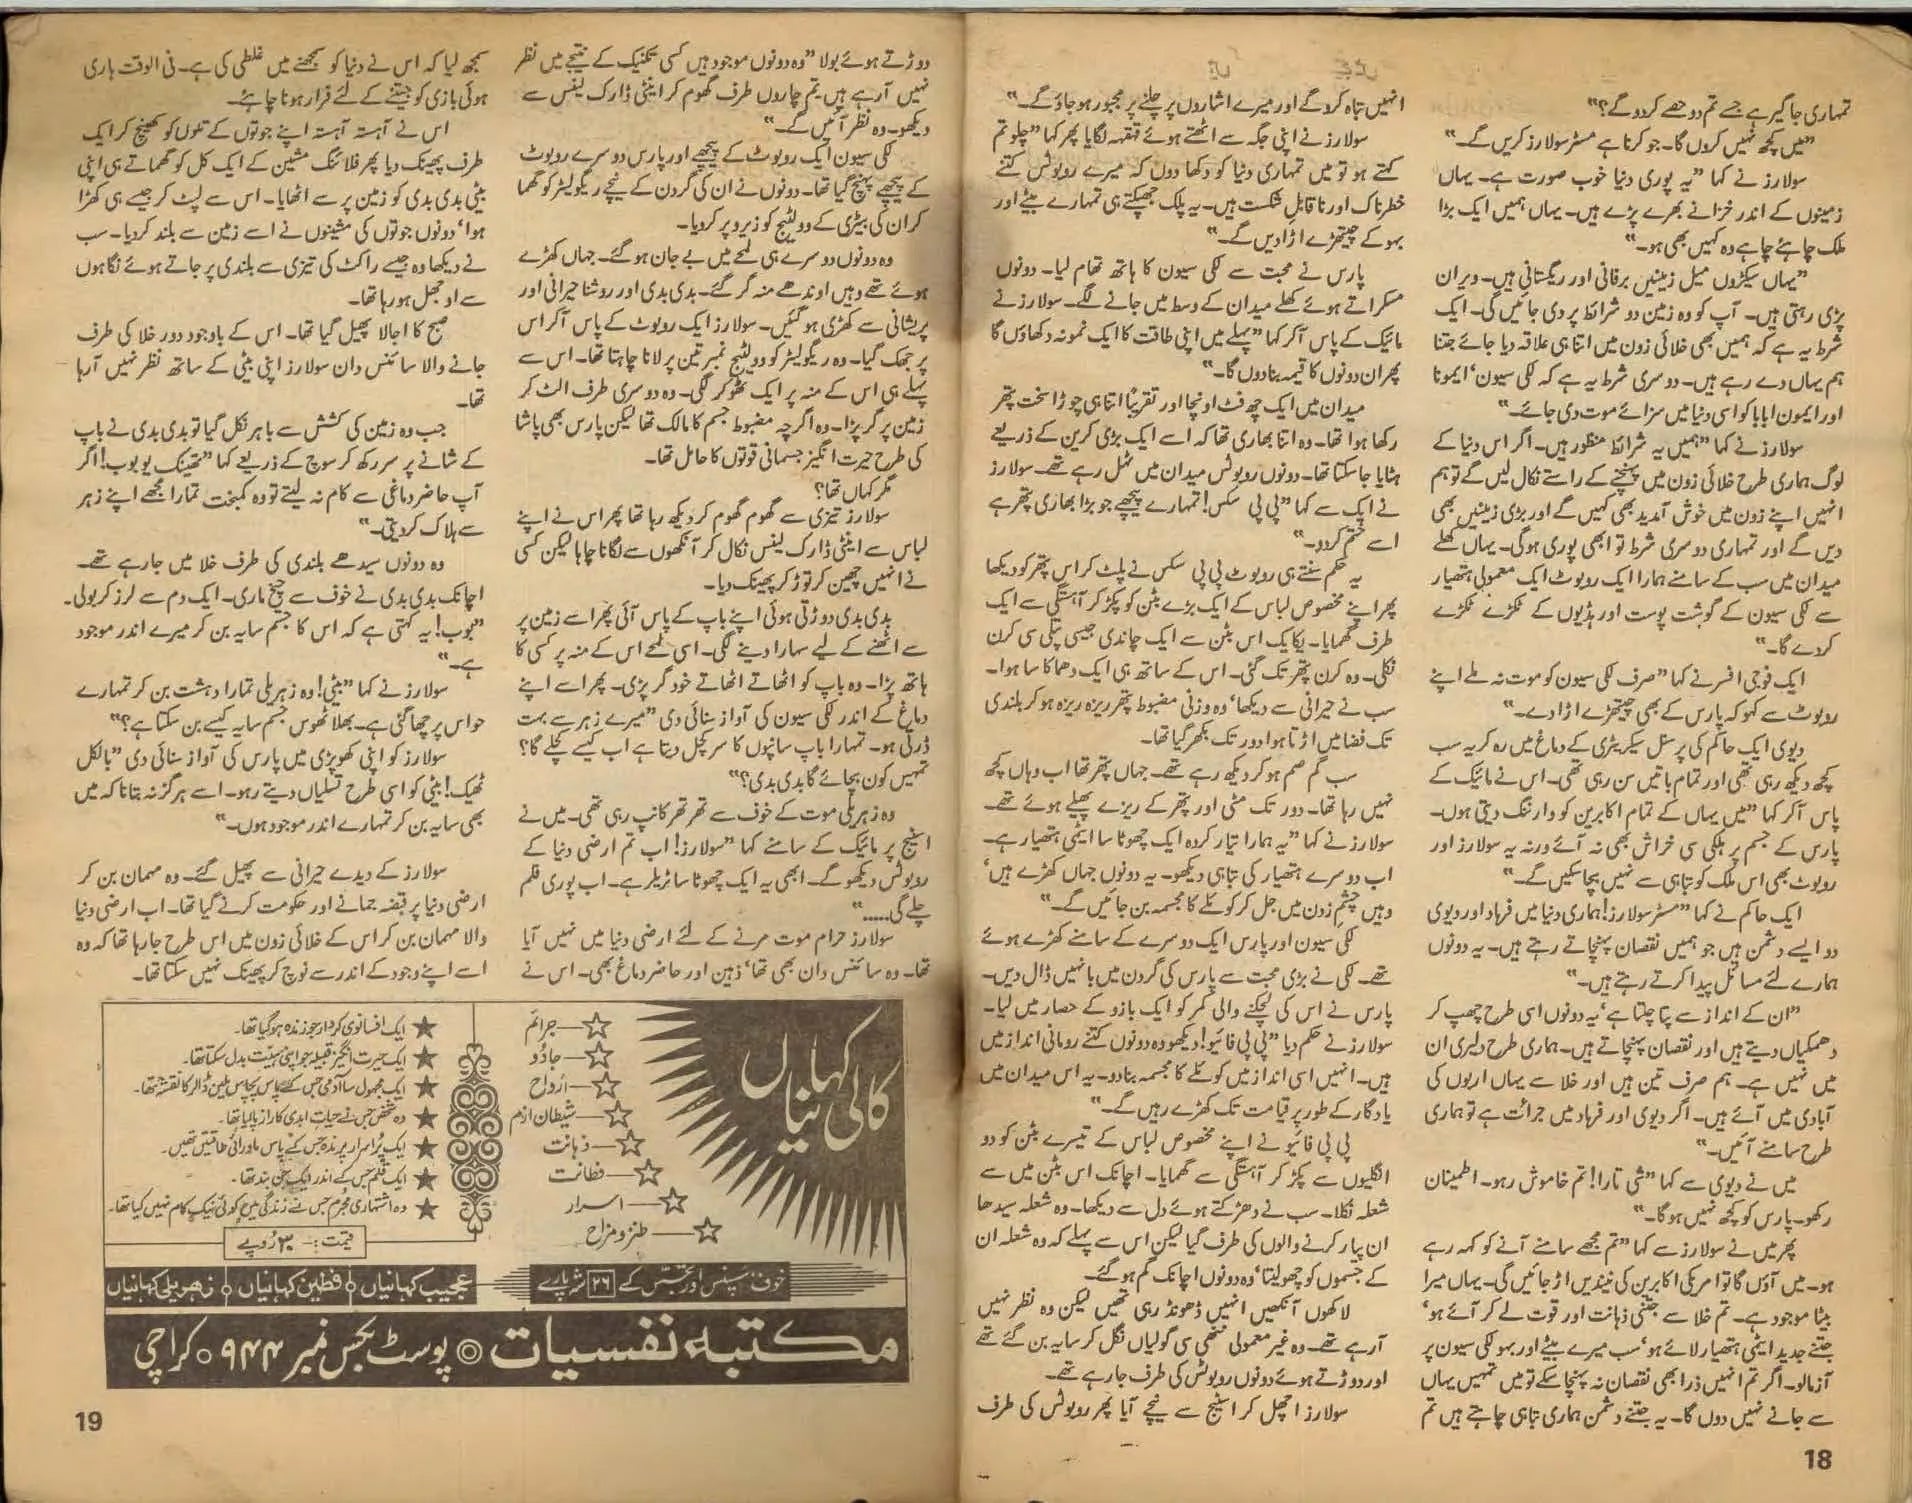 تمہاری جاگیر ہے جسے تم دو حصے کر دو گے؟"
"میں کچھ نہیں کروں گا۔ جو کرنا ہے مسٹر سولارز کریں گے۔"
سولارز نے کہا "یہ پوری دنیا خوب صورت ہے۔ یہاں
زمینوں کے اندر خزانے بھرے پڑے ہیں۔ یہاں ہمیں ایک بڑا
ملک چاہئے چاہے وہ کہیں بھی ہو۔"
"یہاں سیکڑوں میل زمینیں برفانی اور ریگستانی ہیں۔ ویران
پڑی رہتی ہیں۔ آپ کو وہ زمین دو شرائط پر دی جائیں گی۔ ایک
شرط یہ ہے کہ ہمیں بھی خلائی زون میں اتنا ہی علاقہ دیا جائے جتنا
ہم یہاں دے رہے ہیں۔ دوسری شرط یہ ہے کہ لکی سیون، ایمونا
اور ایمون ابابا کو اسی دنیا میں سزائے موت دی جائے۔"
سولارز نے کہا "ہمیں یہ شرائط منظور ہیں۔ اگر اس دنیا کے
لوگ ہماری طرح خلائی زون میں پہنچنے کے راستے نکال لیں گے تو ہم
انہیں اپنے زون میں خوش آمدید بھی کہیں گے اور بڑی زمینیں بھی
دیں گے اور تمہاری دوسری شرط تو ابھی پوری ہو گی۔ یہاں کھلے
میدان میں سب کے سامنے ہمارا ایک روبوٹ ایک معمولی ہتھیار
سے لکی سیون کے گوشت پوست اور ہڈیوں کے ٹکڑے ٹکڑے
کر دے گا۔"
ایک فوجی افسر نے کہا "صرف لکی سیون کو موت نہ ملے اپنے
روبوٹ سے کہو کہ پارس کے بھی چیتھڑے اڑا دے۔"
دیوی ایک حاکم کی پرسنل سیکریٹری کے دماغ میں رہ کر یہ سب
کچھ دیکھ رہی تھی اور تمام باتیں سن رہی تھی۔ اس نے مائیک کے
پاس آ کر کہا "میں یہاں کے تمام اکابرین کو وارننگ دیتی ہوں۔
پارس کے جسم پر ہلکی سی خراش بھی نہ آئے ورنہ یہ سولارز اور
روبوٹ بھی اس ملک کو تباہی سے نہیں بچا سکیں گے۔"
ایک حاکم نے کہا "مسٹر سولارز! ہماری دنیا میں فرہاد اور دیوی
دو ایسے دشمن ہیں جو ہمیں نقصان پہنچاتے رہتے ہیں۔ یہ دونوں
ہمارے لئے مسائل پیدا کرتے رہتے ہیں۔"
"ان کے انداز سے پتا چلتا ہے، یہ دونوں اسی طرح چھپ کر
دھمکیاں دیتے ہیں اور نقصان پہنچاتے ہیں۔ ہماری طرح دلیری ان
میں نہیں ہے۔ ہم صرف تین ہیں اور خلا سے یہاں اربوں کی
آبادی میں آئے ہیں۔ اگر دیوی اور فرہاد میں جرائت ہے تو ہماری
طرح سامنے آئیں۔"
میں نے دیوی سے کہا "شی تارا! تم خاموش رہو۔ اطمینان
رکھو۔ پارس کو کچھ نہیں ہو گا۔"
پھر میں نے سولارز سے کہا "تم مجھے سامنے آنے کو کہہ رہے
ہو۔ میں آؤں گا تو امریکی اکابرین کی نیندیں اڑ جائیں گی۔ یہاں میرا
بیٹا موجود ہے۔ تم خلا سے جتنی ذہانت اور قوت لے کر آئے ہو،
جتنے جدید ایٹمی ہتھیار لائے ہو، سب میرے بیٹے اور بہو لکی سیون پر
آزما لو۔ اگر تم انہیں ذرا بھی نقصان نہ پہنچا سکے تو میں تمہیں یہاں
سے جانے نہیں دوں گا۔ یہ جتنے دشمن ہماری تباہی چاہتے ہیں تم
18
انہیں تباہ کرو گے اور میرے اشاروں پر چلنے پر مجبور ہو جاؤ گے۔"
سولارز نے اپنی جگہ سے اٹھتے ہوئے قہقہہ لگایا پھر کہا "چلو تم
کہتے ہو تو میں تمہاری دنیا کو دکھا دوں کہ میرے روبوٹس کتنے
خطرناک اور ناقابل شکست ہیں۔ یہ پلک جھپکتے ہی تمہارے بیٹے اور
بہو کے چیتھڑے اڑا دیں گے۔"
پارس نے محبت سے لکی سیون کا ہاتھ تھام لیا۔ دونوں
مسکراتے ہوئے کھلے میدان کے وسط میں جانے لگے۔ سولارز نے
مائیک کے پاس آ کر کہا "پہلے میں اپنی طاقت کا ایک نمونہ دکھاؤں گا
پھر ان دونوں کا قیمہ بنا دوں گا۔"
میدان میں ایک چھ فٹ اونچا اور تقریباً اتنا ہی چوڑا سخت پتھر
رکھا ہوا تھا۔ وہ اتنا بھاری تھا کہ اسے ایک بڑی کرین کے ذریعے
ہٹایا جا سکتا تھا۔ دونوں روبوٹس میدان میں ٹہل رہے تھے۔ سولارز
نے ایک سے کہا "پی پی سکس! تمہارے پیچھے جو بڑا بھاری پتھر ہے
اسے ختم کر دو۔"
یہ حکم سنتے ہی روبوٹ پی پی سکس نے پلٹ کر اس پتھر کو دیکھا
پھر اپنے مخصوص لباس کے ایک بڑے بٹن کو پکڑ کر آہستگی سے ایک
طرف گھمایا۔ یکایک اس بٹن سے ایک چاندی جیسی پتلی سی کرن
نکلی۔ وہ کرن پتھر تک گئی۔ اس کے ساتھ ہی ایک دھماکا سا ہوا۔
سب نے حیرانی سے دیکھا، وہ وزنی مضبوط پتھر ریزہ ریزہ ہو کر بلندی
تک فضا میں اڑتا ہوا دور تک بکھر گیا تھا۔
سب گم صم ہو کر دیکھ رہے تھے۔ جہاں پتھر تھا اب وہاں کچھ
نہیں رہا تھا۔ دور تک مٹی اور پتھر کے ریزے پھیلے ہوئے تھے۔
سولارز نے کہا "یہ ہمارا تیار کردہ ایک چھوٹا سا ایٹمی ہتھیار ہے۔
اب دوسرے ہتھیار کی تباہی دیکھو۔ یہ دونوں جہاں کھڑے ہیں،
وہیں چشم زدن میں جل کر کوئلے کا مجسمہ بن جائیں گے۔"
لکی سیون اور پارس ایک دوسرے کے سامنے کھڑے ہوئے
تھے۔ لکی نے بڑی محبت سے پارس کی گردن میں بانہیں ڈال دیں۔
پارس نے اس کی لچکنے والی کمر کو ایک بازو کے حصار میں لیا۔
سولارز نے حکم دیا "پی پی فائیو! دیکھو وہ دونوں کتنے رومانی انداز میں
ہیں۔ انہیں اسی انداز میں کوئلے کا مجسمہ بنا دو۔ یہ اس میدان میں
یادگار کے طور پر قیامت تک کھڑے رہیں گے۔"
پی پی فائیو نے اپنے مخصوص لباس کے تیسرے بٹن کو دو
انگلیوں سے پکڑ کر آہستگی سے گھمایا۔ اچانک اس بٹن میں سے
شعلہ نکلا۔ سب نے دھڑکتے ہوئے دل سے دیکھا۔ وہ شعلہ سیدھا
ان پیار کرنے والوں کی طرف گیا لیکن اس سے پہلے کہ وہ شعلہ ان
کے جسموں کو چھو لیتا، وہ دونوں اچانک گم ہو گئے۔
لاکھوں آنکھیں انہیں ڈھونڈ رہی تھیں لیکن وہ نظر نہیں
آ رہے تھے۔ وہ غیر معمولی ننھی سی گولیاں نگل کر سایہ بن گئے تھے
اور دوڑتے ہوئے دونوں روبوٹس کی طرف جا رہے تھے۔
سولارز اچھل کر اسٹیج سے نیچے آیا پھر روبوٹس کی طرف
دوڑتے ہوئے بولا "وہ دونوں موجود ہیں کسی تکنیک کے نتیجے میں نظر
نہیں آ رہے ہیں۔ تم چاروں طرف گھوم کر اینٹی ڈارک لینس سے
دیکھو۔ وہ نظر آئیں گے۔"
لکی سیون ایک روبوٹ کے پیچھے اور پارس دوسرے روبوٹ
کے پیچھے پہنچ گیا تھا۔ دونوں نے ان کی گردن کے نیچے ریگولیٹر کو گھما
کر ان کی بیٹری کے وولٹیج کو زیرو پر کر دیا۔
وہ دونوں دوسرے ہی لمحے میں بے جان ہو گئے۔ جہاں کھڑے
ہوئے تھے وہیں اوندھے منہ گر گئے۔ بدی بدی اور روشنا حیرانی اور
پریشانی سے کھڑی ہو گئیں۔ سولارز ایک روبوٹ کے پاس آ کر اس
پر جھک گیا۔ وہ ریگولیٹر کو وولٹیج نمبر تین پر لانا چاہتا تھا۔ اس سے
پہلے ہی اس کے منہ پر ایک ٹھوکر لگی۔ وہ دوسری طرف الٹ کر
زمین پر گر پڑا۔ وہ اگرچہ مضبوط جسم کا مالک تھا لیکن پارس بھی پاشا
کی طرح حیرت انگیز جسمانی قوتوں کا حامل تھا۔
مگر کہاں تھا؟
سولارز تیزی سے گھوم گھوم کر دیکھ رہا تھا پھر اس نے اپنے
لباس سے اینٹی ڈارک لینس نکال کر آنکھوں سے لگانا چاہا لیکن کسی
نے انہیں چھین کر توڑ کر پھینک دیا۔
بدی بدی دوڑتی ہوئی اپنے باپ کے پاس آئی پھر اسے زمین پر
سے اٹھنے کے لیے سہارا دینے لگی۔ اسی لمحے اس کے منہ پر کسی کا
ہاتھ پڑا۔ وہ باپ کو اٹھاتے اٹھاتے خود گر پڑی۔ پھر اسے اپنے
دماغ کے اندر لکی سیون کی آواز سنائی دی "میرے زہر سے بہت
ڈرتی ہو۔ تمہارا باپ سانپوں کا سر کچل دیتا ہے اب کیسے کچلے گا؟
تمہیں کون بچائے گا بدی بدی؟"
وہ زہریلی موت کے خوف سے تھر تھر کانپ رہی تھی۔ میں نے
اسٹیج پر مائیک کے سامنے کہا "سولارز! اب تم ارضی دنیا کے
روبوٹس دیکھو گے۔ ابھی یہ ایک چھوٹا سا ٹریلر ہے۔ اب پوری فلم
چلے گی....."
سولارز حرام موت مرنے کے لئے ارضی دنیا میں نہیں آیا
تھا۔ وہ سائنس دان بھی تھا، ذہین اور حاضر دماغ بھی۔ اس نے
سمجھ لیا کہ اس نے دنیا کو سمجھنے میں غلطی کی ہے۔ فی الوقت ہاری
ہوئی بازی کو جیتنے کے لئے فرار ہونا چاہئے۔
اس نے آہستہ آہستہ اپنے جوتوں کے تلوں کو کھینچ کر ایک
طرف پھینک دیا پھر فلائنگ مشین کے ایک کل کو گھماتے ہی اپنی
بیٹی بدی بدی کو زمین پر سے اٹھایا۔ اس سے لپٹ کر جیسے ہی کھڑا
ہوا، دونوں جوتوں کی مشینوں نے اسے زمین سے بلند کر دیا۔ سب
نے دیکھا وہ جیسے راکٹ کی تیزی سے بلندی پر جاتے ہوئے نگاہوں
سے اوجھل ہو رہا تھا۔
صبح کا اجالا پھیل گیا تھا۔ اس کے باوجود دور خلا کی طرف
جانے والا سائنس دان سولارز اپنی بیٹی کے ساتھ نظر نہیں آ رہا
تھا۔
جب وہ زمین کی کشش سے باہر نکل گیا تو بدی بدی نے باپ
کے شانے پر سر رکھ کر سوچ کے ذریعے کہا "تھینک یو بوب! اگر
آپ حاضر دماغی سے کام نہ لیتے تو وہ کمبخت تمارا مجھے اپنے زہر
سے ہلاک کر دیتی۔"
وہ دونوں سیدھے بلندی کی طرف خلا میں جا رہے تھے۔
اچانک بدی بدی نے خوف سے چیخ ماری۔ ایک دم سے لرز کر بولی۔
"بوب! یہ کہتی ہے کہ اس کا جسم سایہ بن کر میرے اندر موجود
ہے۔"
سولارز نے کہا "بیٹی! وہ زہریلی تمارا دہشت بن کر تمہارے
حواس پر چھا گئی ہے۔ بھلا ٹھوس جسم سایہ کیسے بن سکتا ہے؟"
سولارز کو اپنی کھوپڑی میں پارس کی آواز سنائی دی "بالکل
ٹھیک! بیٹی کو اسی طرح تسلیاں دیتے رہو۔ اسے ہرگز نہ بتانا کہ میں
بھی سایہ بن کر تمہارے اندر موجود ہوں۔"
سولارز کے دیدے حیرانی سے پھیل گئے۔ وہ مہمان بن کر
ارضی دنیا پر قبضہ جمانے اور حکومت کرنے گیا تھا۔ اب ارضی دنیا
والا مہمان بن کر اس کے خلائی زون میں اس طرح جا رہا تھا کہ وہ
اسے اپنے وجود کے اندر سے نوچ کر پھینک نہیں سکتا تھا۔
کالی کہانیاں
جرائم
جادو
ارواح
شیطان ازم
ذہانت
فطانت
اسرار
طنز و مزاح
ایک افسانوی کردار جو زندہ ہو گیا تھا۔
ایک حیرت انگیز قبیلہ جو اپنی ہیئت بدل سکتا تھا۔
ایک مجہول سا آدمی جس کے پاس پچاس بلین ڈالر کا نقشہ تھا۔
وہ شخص جس نے حیات ابدی کا راز پا لیا تھا۔
ایک پراسرار پرندہ جس کے پاس ماورائی طاقتیں تھیں۔
ایک قلم جس کے اندر ایک جن بند تھا۔
وہ اشتہاری مجرم جس نے زندگی میں کوئی نیک کام نہیں کیا تھا۔
قیمت :- ۳۰ روپے
خوف، سسپنس اور تجسس کے ۲۶ شہ پارے
عجیب کہانیاں ٥ فطین کہانیاں ٥ زہریلی کہانیاں
مکتبہ نفسیات ◎ پوسٹ بکس نمبر ۹۴۴ ٥ کراچی
19